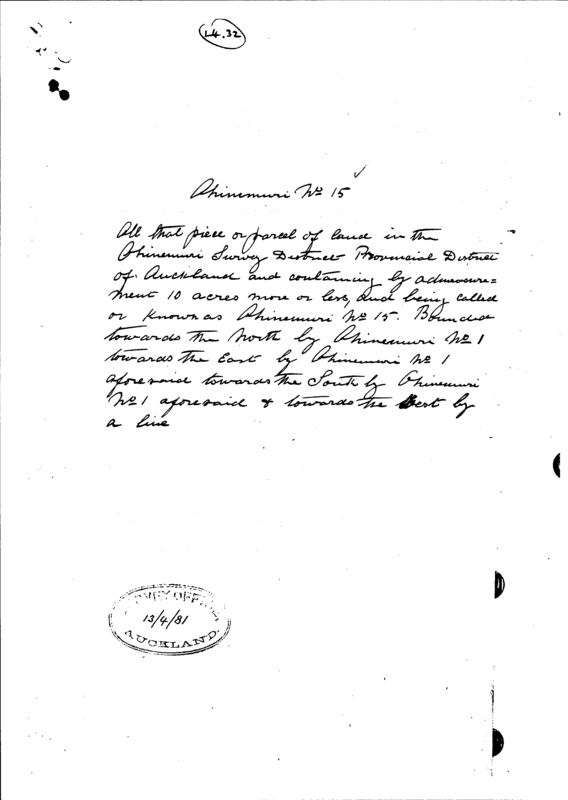 14.32
Ohinemuri No 15
All that piece or parcel of land in the
Ohinemuri Survey District Provincial District
of Auckland and containing by admeasure=
ment 10 acres more or less, and being called
or known as Ohinemuri No 15. Bounded
towards the North by Ohinemuri No 1
towards the East by Ohinemuri No 1
aforesaid towards the South by Ohinemuri
No 1 aforesaid & towards the West by
a line
SURVEY OFFICE,
13/4/81
AUCKLAND.